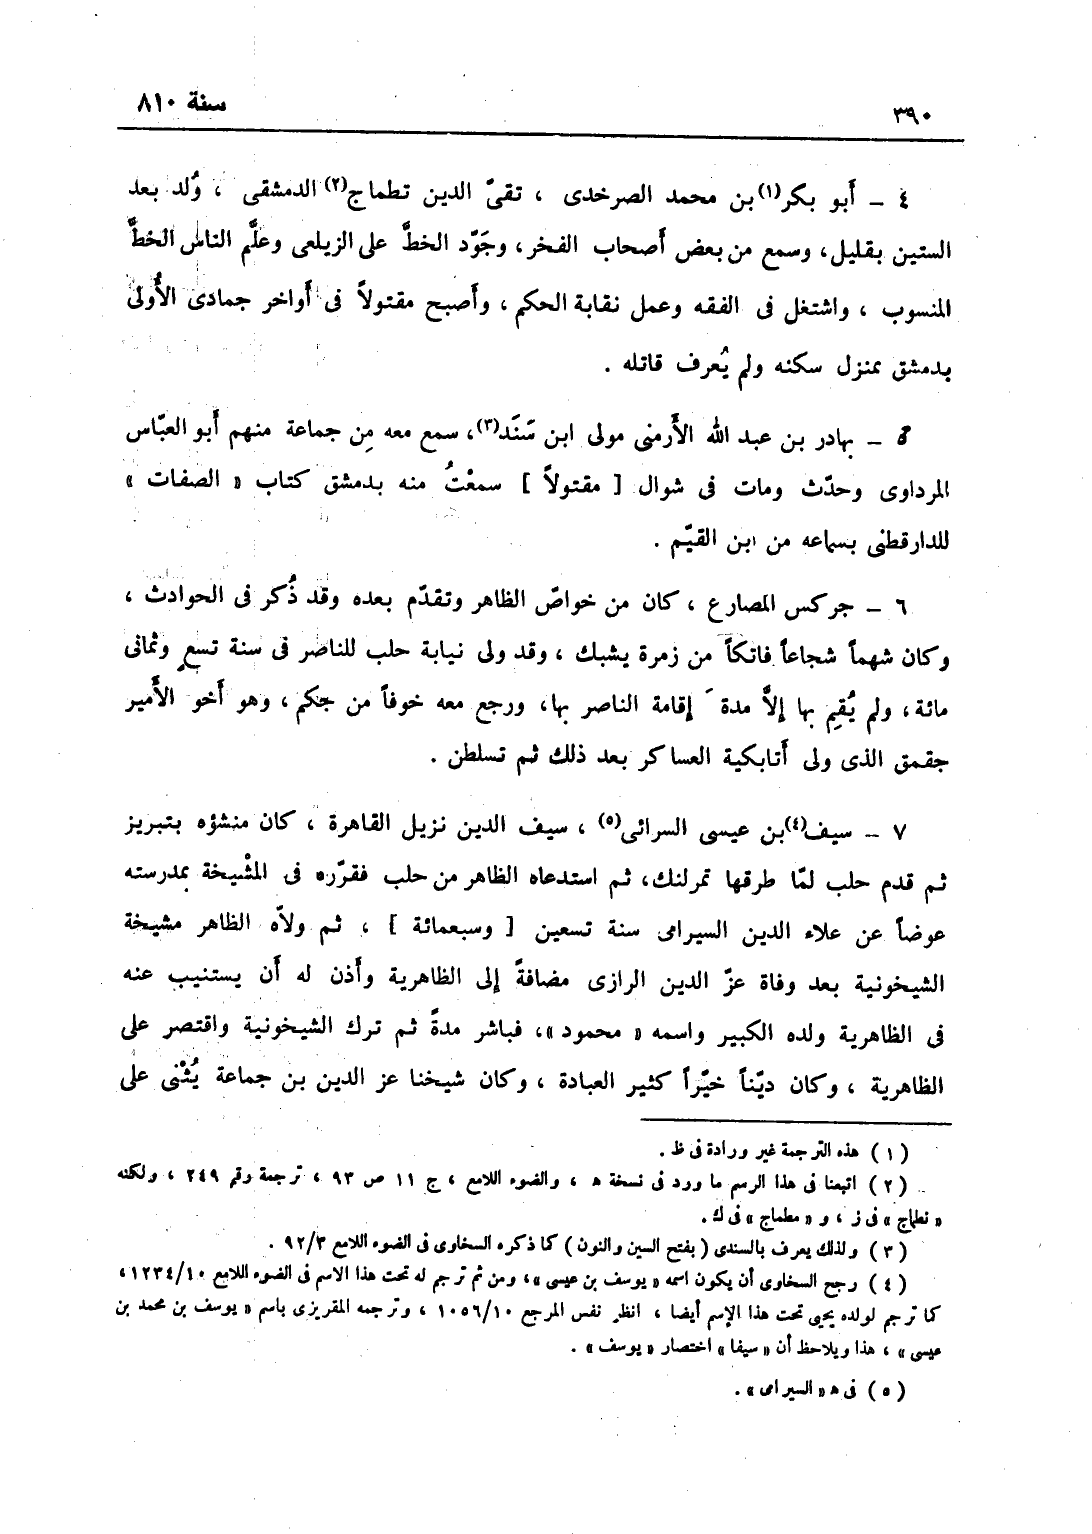 ٣٩٠
سنة ٨١٠
٤ – أَبو بكر(١) بن محمد الصرخدى ، تقىّ الدين تطماج(٢) الدمشقى ، وُلد بعد
الستين بقليل، وسمع من بعض أَصحاب الفخر، وجَوّد الخطَّ على الزيلعى وعلَّم الناس الخطَّ
المنسوب ، واشتغل فى الفقه وعمل نقابة الحكم ، وأَصبح مقتولاً فى أَواخر جمادى الأُولى
بدمشق بمنزل سكنه ولم يُعرف قاتله .
٥ – بهادر بن عبد الله الأَرمنى مولى ابن سَنَد(٣)، سمع معه مِن جماعة منهم أَبو العبّاس
المرداوى وحدّث ومات فى شوال [ مقتولاً ] سمعْتُ منه بدمشق كتاب « الصفات »
للدارقطنى بسماعه من ابن القيّم .
٦ – جركس المصارع ، كان من خواصّ الظاهر وتقدّم بعده وقد ذُكر فى الحوادث ،
وكان شهماً شجاعاً فاتكاً من زمرة يشبك ، وقد ولى نيابة حلب للناصر فى سنة تسعٍ وثمانى
مائة، ولم يُقِم بها إلاَّ مدةَ إقامة الناصر بها، ورجع معه خوفاً من جكم، وهو أَخو الأَمير
جقمق الذى ولى أَتابكية العساكر بعد ذلك ثم تسلطن .
٧ – سيف(٤) بن عيسى السرائى(٥) ، سيف الدين نزيل القاهرة ، كان منشؤه بتبريز
ثم قدم حلب لمّا طرقها تمرلنك، ثم استدعاه الظاهر من حلب فقرّره فى المشْيخة بمدرسته
عوضاً عن علاء الدين السيرامى سنة تسعين [ وسبعمائة ] ، ثم ولاّه الظاهر مشيخة
الشيخونية بعد وفاة عزّ الدين الرازى مضافةً إلى الظاهرية وأَذن له أَن يستنيب عنه
فى الظاهرية ولده الكبير واسمه « محمود »، فباشر مدةً ثم ترك الشيخونية واقتصر على
الظاهرية ، وكان ديّناً خيّراً كثير العبادة ، وكان شيخنا عز الدين بن جماعة يُثْنى على
( ١ ) هذه الترجمة غير ورادة فى ظ .
( ٢ ) اتبعنا فى هذا الرسم ما ورد فى نسخة ﻫ ، والضوء اللامع ، ج ١١ ص ٩٣ ، ترجمة رقم ٢٤٩ ، ولكنه
« نطماج » فى ز ، و « مطماج » فى ك .
( ٣ ) ولذلك يعرف بالسندى ( بفتح السين والنون ) كما ذكره السخاوى فى الضوء اللامع ٩٢/٣ .
( ٤ ) رجح السخاوى أن يكون اسمه « يوسف بن عيسى »، ومن ثم ترجم له تحت هذا الاسم فى الضوء اللامع ١٢٣٤/١٠ ،
كما ترجم لولده يحيى تحت هذا الإسم أيضا ، انظر نفس المرجع ١٠٥٦/١٠ ، وترجمه المقريزى باسم « يوسف بن محمد بن
عيسى » ، هذا ويلاحظ أن « سيفا » اختصار « يوسف » .
( ٥ ) فى ﻫ « السيرامى » .